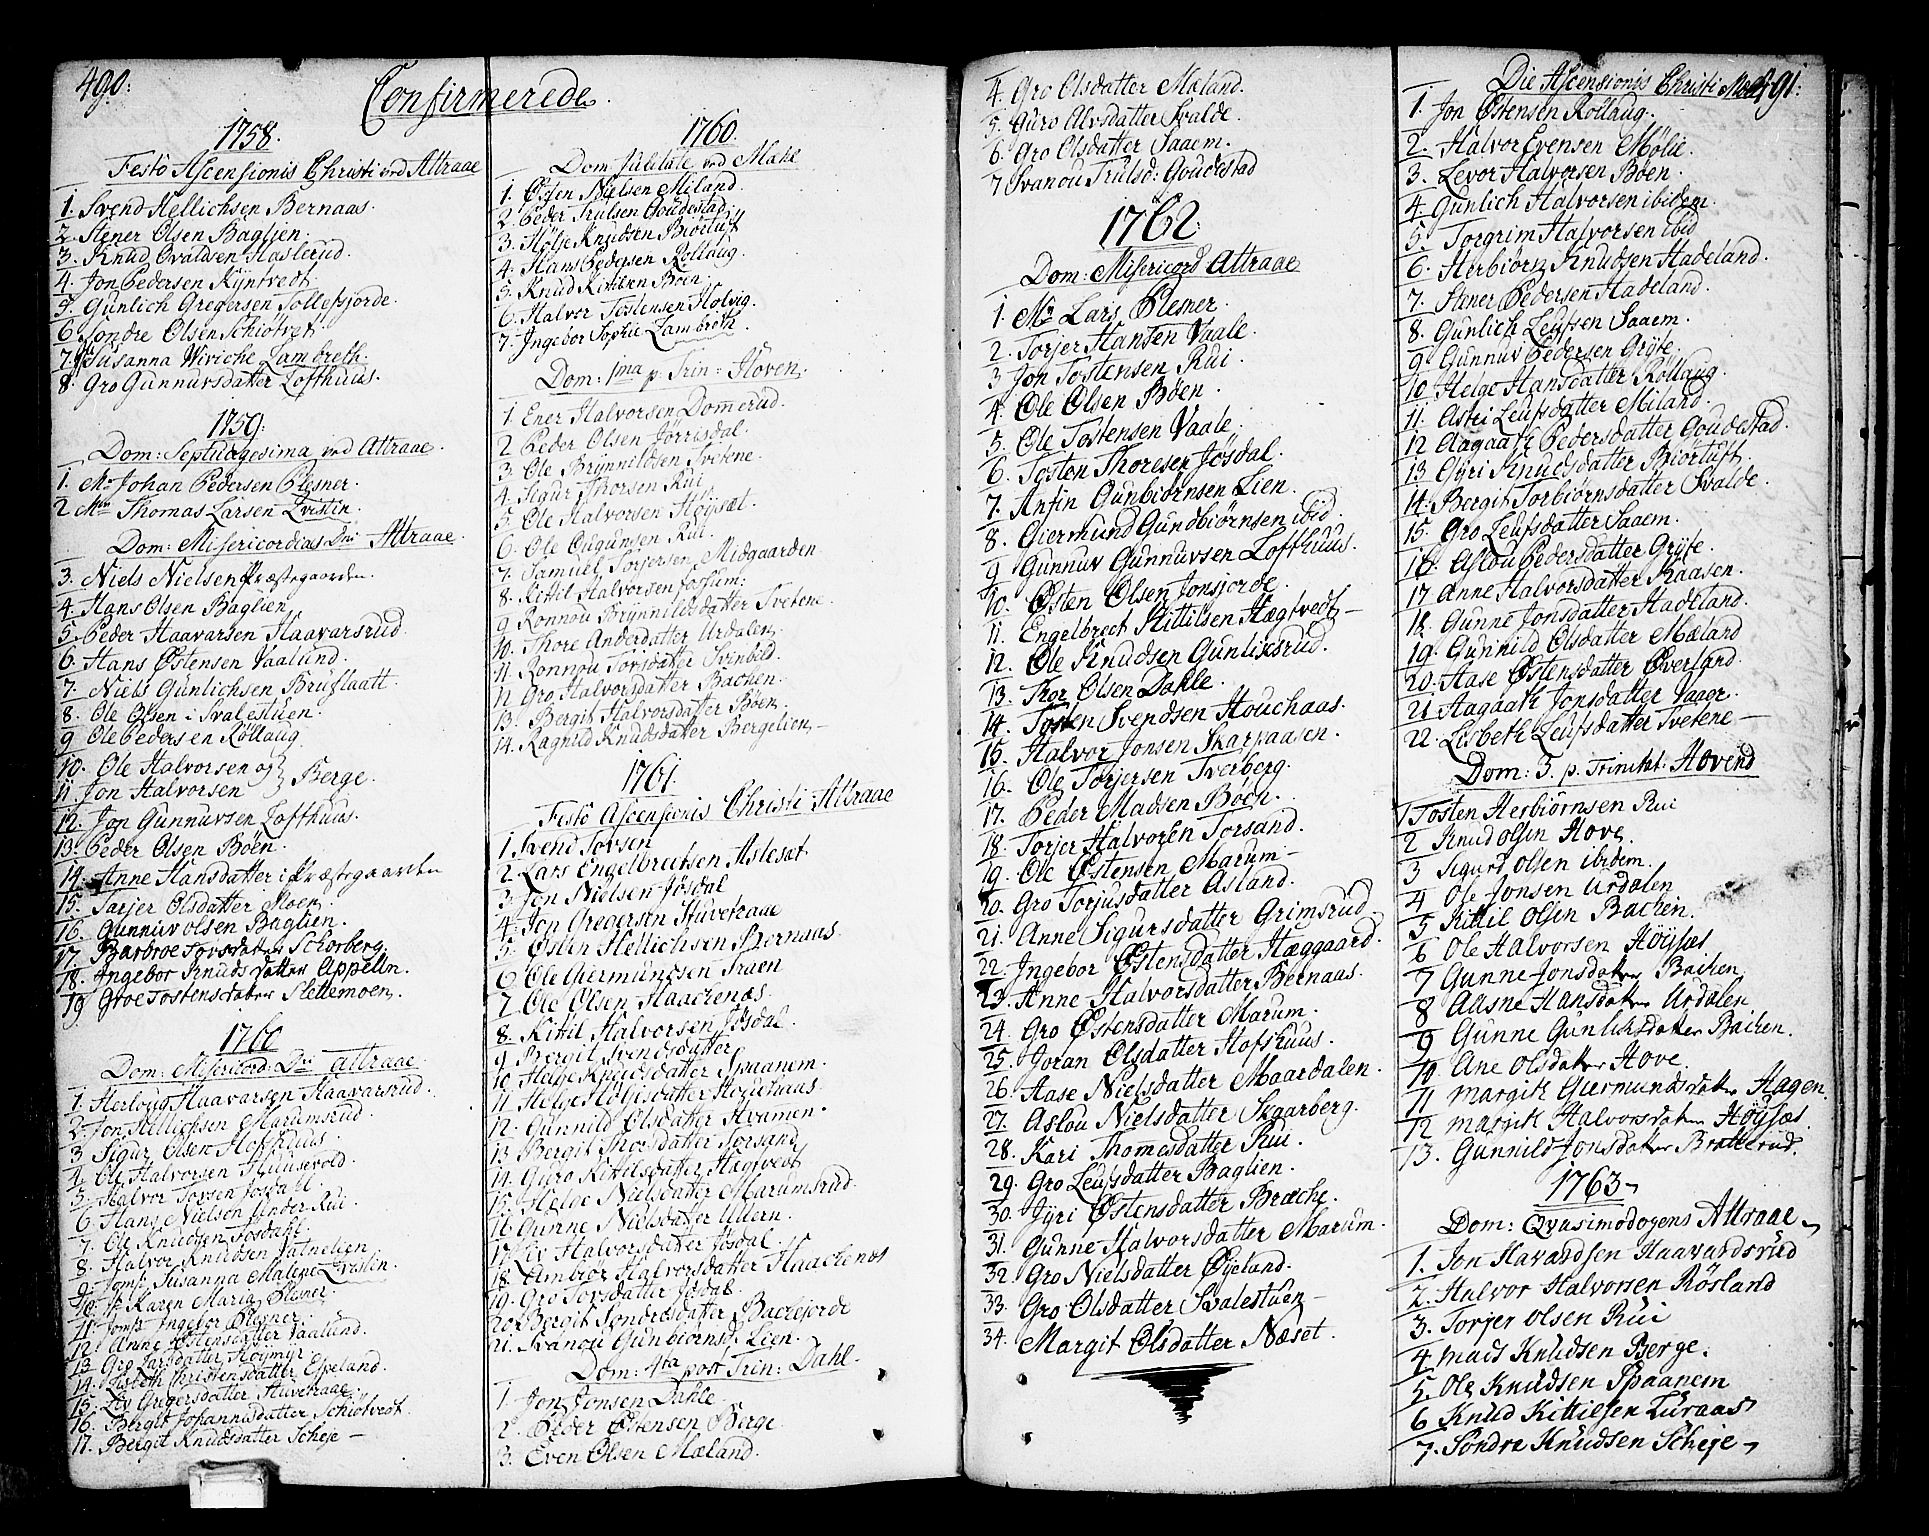 490:
Confirmerede
1758.
Festo Ascensionis Christi ved Attraae
1. Svend Hellichsen Bernaas.
2. Stener Olsen Baglien.
3. Knud Ovaldsen Haslerud.
4. Jon Pedersen Kyntvedt
5. Gunlich Gregersen Tollefsjorde.
6. Sondre Olsen Schiotvet
7. Susanna Wiriche Lambreth.
8. Gro Gunnuvsdatter Lofthuus.
1759.
Dom: Septuagesima ved Attraae.
1. Mr Johan Pedersen Plesner.
2. Mr Thomas Larsen Qvistin.
Dom: Misericordias Dni Attraae.
3. Niels Nielsen Præstegaarden.
4. Hans Olsen Baglien
5. Peder Haavarsen Haavarsrud
6. Hans Østensen Vaalund.
7. Niels Gunlichsen Bruflaatt.
8. Ole Olsen i Svalestuen.
9 Ole Pedersen Rollaug
10. Ole Halvorsen og
11 Jon Halvorsen } Berge.
12. Jon Gunnuvsen Lofthuus.
13. Peder Olsen Böen.
14. Anne Hansdatter i Præstegaarden
15. Tarjer Olsdatter Moen.
16. Gunnuv Olsen Baglien.
17 Barbroe Torsdater Schorberg.
18. Ingebor Knuds datter Appelln.
19 Groe Tostensdater Slettemoen.
1760
Dom: Misericord: Dni Attraae.
1. Herloug Haavarsen Haavarsrud.
2. Jon Hellichsen Marumsrud.
3 Sigur Olsen Hofshuus.
4. Ole Halvorsen
5. Halvor Torsen Josdahl.
6. Hans Nielsen Under Rui.
7. Ole Knudsen Josdahl.
8. Halvor Knudsen
9. Jomfr Susanna Malene Qvistin.
10. Jr Karen Maria Plesner.
11. Jomfr Ingebor Plesner.
12. Anne Østensdatter Vaalund.
13 Gro Larsdatter Höymyr
14. Lisbeth Christensdatter Espeland.
15. Liv Gregersdatter Huvetraae.
16. Bergit Johannisdatter Schiotvedt.
17. Bergit Knudsdatter Scheje –
1760.
Dom Jubilate ved Mahl
1. Østen Nielsen Miland.
2. Peder Trulsen Goudestad.
3. Holje Knudsen Biortuft
4. Hans Pedersen Rollaug.
5. Knud Kittilsen Böen
6. Halvor Tostensen Holvig.
7. Ingebor Sophie Lambreth.
Dom: 1ma p: Trin: Hoven.
1. Ener Halvorsen Dommerud.
2 Peder Olsen Jörrisdal.
3. Ole Brynnildsen Svetene.
4. Sigur Thorsen Rui.
5. Ole Halvorsen Höysæt.
6. Ole Ougunsen Rui.
7. Samuel Torjersen Midgaarden
8. Kittil Halvorsen Fossum:
9. Ronnou Brynnildsdatter Svetene.
10. Thore Andersdatter Urdalen.
11. Ronnou Torsdatter Svinbild.
12 Gro Halvorsdatter Bachen.
13. Bergit Halvorsdatter Böen.
14. Ragnild Knudsdatter Bergelien –
1761.
Festo Ascensionis Christi Attraae
1. Svend Torsen
2. Lars Engelbrechtsen Aslesæt
3. Jon Nielsen Jösdal
4. Jon Gregersen Huvetraae
5. Østen Hellichsen Bernaas.
6. Ole Giermundsen Traen
7. Ole Olsen Haachenæs.
8. Kittil Halvorsen Jösdal.
9 Bergit Svendsdatter
10 Helge Knudsdatter Spaanem.
11 Helge Holjesdatter Houchaas
12. Gunnild Olsdatter Hvamen.
13. Bergit Thorsdatter Torsand
14. Guro Kittilsdatter Hægtvedt
15. Helge Nielsdatter Marumsrud.
16. Gunne Nielsdatter Ullern.
17. Liv Halvorsdatter Jösdal.
18. Ambior Halvorsdatter Haachenæs
19. Gro Torsdatter Jösdal.
20. Bergit Sondresdatter Bachejorde
21. Svanou Gunbiornsd: Lien.
Dom: 4ta post Trin: Dahl.
1. Jon Jonsen Dahle.
2. Peder Østensen Berge.
3. Even Olsen Mæland.
4. Gro Olsdatter Mæland.
5. Guro Alvsdatter Svalde.
6. Gro Olsdatter Saaem.
7 Svanou Trulsd: Goudestad
1762.
Dom: Misericord Attraae
1. Mr Lars Plesner.
2. Torjer Hansen Vaale.
3 Jon Tostensen Rui.
4. Ole Olsen Böen.
5. Ole Tostensen Vaale.
6. Tosten Thoresen Jösdal.
7. Anfin Gunbiornsen Lien.
8. Giermund Gundbiörnsen ibid.
9 Gunnuv Gunnuvsen Lofthuus.
10. Østen Olsen Jonsjorde.
11. Engelbrect Kittilsen Hægtvedt –
12. Ole Knudsen Gunlixsrud.
13. Thor Olsen Dahle.
14. Tosten Svendsen Houchaas.
15. Halvor Jonsen Skarpaasen.
16. Ole Torjersen Tverberg.
17. Peder Madsen Böen.
18. Torjer Halvorsen Torsand.
19. Ole Østensen Marum –
20. Gro Torjusdatter Asland.
21. Anne Sigursdatter Grimsrud.
22. Ingebor Østensdatter Hæggaard.
23. Anne Halvorsdatter Bernaas.
24. Gro Østensdatter Marum.
25 Joran Olsdatter Hofshuus.
26. Aase Nielsdatter Maardalen.
27. Aslou Nielsdatter Skaarberg.
28. Kari Thomesdatter Rui.
29. Gro Leufsdatter Baglien.
30. Jyri Østensdatter Bræche.
31. Gunne Halvorsdatter Marum.
32. Gro Nielsdatter Øyeland.
33. Gro Olsdatter Svalestuen –
34. Margit Olsdatter Næset.
491:
Die Ascensionis Christi
1. Jon Østensen Rollaug.
2. Halvor Evensen Mölie.
3. Levor Halvorsen Böen.
4 Gunlich Halvorsen ibidem.
5. Torgrim Halvorsen ibid
6. Herbiorn Knudsen Hadeland.
7. Stener Pedersen Hadeland.
8. Gunlich Leufsen Saaem.
9. Gunnuv Pedersen Gryte.
10 Helge Hansdatter Rollaug.
11. Astri Leufsdatter Miland.
12 Aagaath Pedersdatter Goudestad.
13 Jyri Knudsdatter Biortuft.
14. Bergit Torbiörnsdatter Svalde.
15. Gro Leufsdatter Saaem.
16. Aslou Pedersdatter Gryte.
17 Anne Halvorsdatter Kaasen.
18. Gunne Jonsdatter Hadeland.
19. Gunnild Olsdatter Mæland
20. Aase Østensdatter Øverland.
21 Aagaath Jonsdatter Vaaer.
22. Lisbeth Leufsdatter Tvetene –
Dom: 3. p. Trinitat: Hovend
1 Tosten Herbiörnsen Rui
2 Knud Olsen Hove.
3 Sigurd Olsen ibidem.
4 Ole Jonsen Urdalen
5 Kittil Olsen Bachen.
6 Ole Halvorsen Höysæs
7 Gunne Jonsdater Bachen
8 Aasne Hansdater Urdalen
9 Gunne Gunliksdater Bachen.
10 Ane Olsdater Hove
11 Margith Giermundsdater Hagen.
12 Margith Halvorsdater Höysæs.
13. Gunnild Jonsdater Bratterud.
1763 –
Dom: Qvasimodogens Attraae –
1. Jon Havardsen Haavardsrud
2. Halvor Halvorsen Rösland
3. Torjer Olsen Rui
4 Mads Knudsen Berge.
5. Ole Knudsen Spaanem
6 Knud Kittilsen Luraas
7. Söndre Knudsen Scheje –